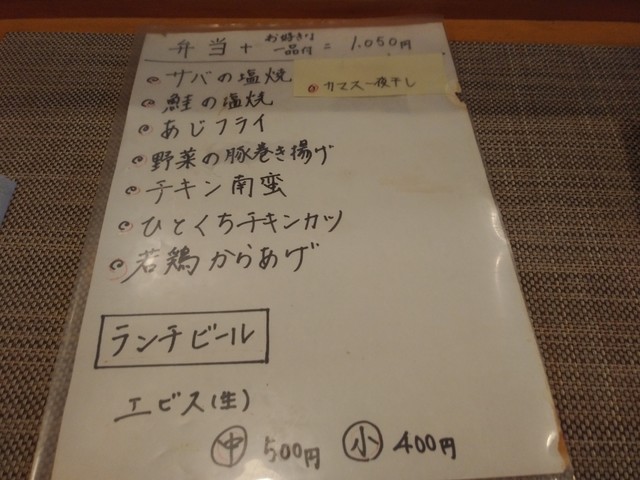 弁当 + お好きな一品付 = 1,050円
サバの塩焼
カマス一夜干し
鮭の塩焼
あじフライ
野菜の豚巻き揚げ
チキン南蛮
ひとくちチキンカツ
若鶏からあげ
ランチビール
エビス(生)
中 500円 小 400円